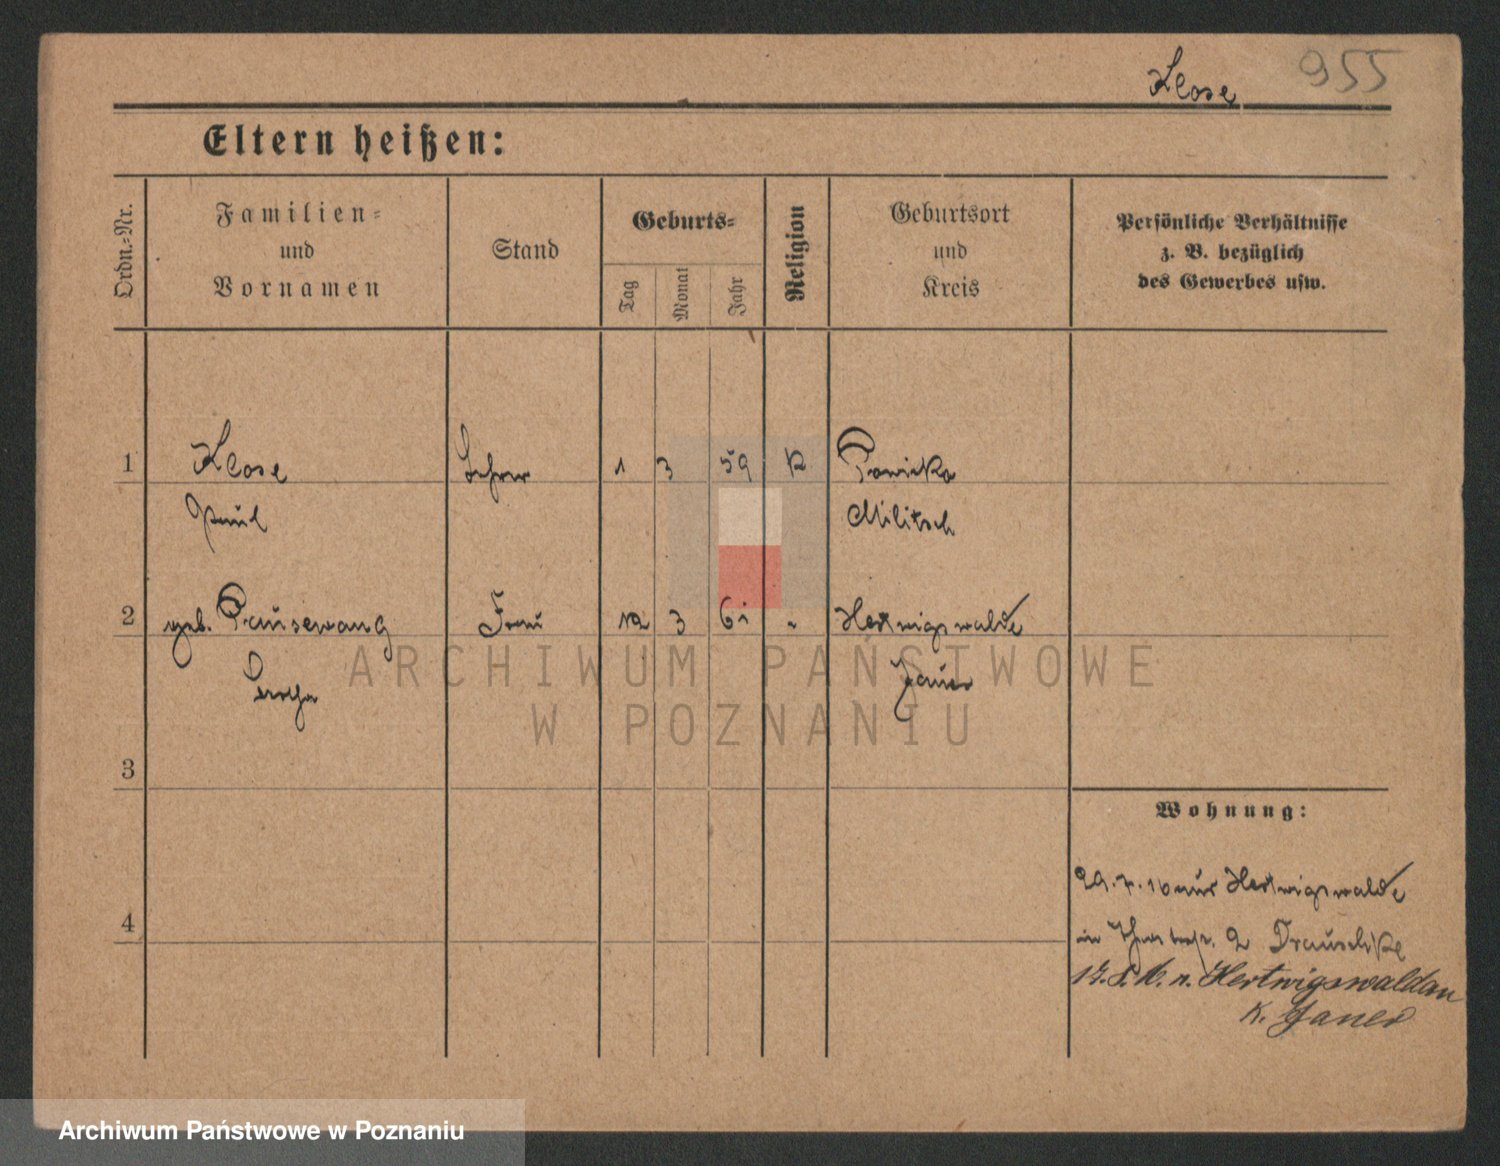 Klose 955
Eltern heißen:
Ordn.=Nr.
Familien=
und
Vornamen
Stand
Geburts=
Tag
Monat
Jahr
Religion
Geburtsort
und
Kreis
Persönliche Verhältnisse
z. B. bezüglich
des Gewerbes usw.
1 Klose Lehrer 1 3 59 K
Paul Militsch
2 geb. Pausewang Frau 12 3 61 " Hertwigswalde
Jauer
3
Wohnung:
29.7.16 aus Hertwigswalde
4
in 2
17.8.16. n. Hertwigswaldau
K. Jauer
ARCHIWUM PAŃSTWOWE
W POZNANIU
Archiwum Państwowe w Poznaniu